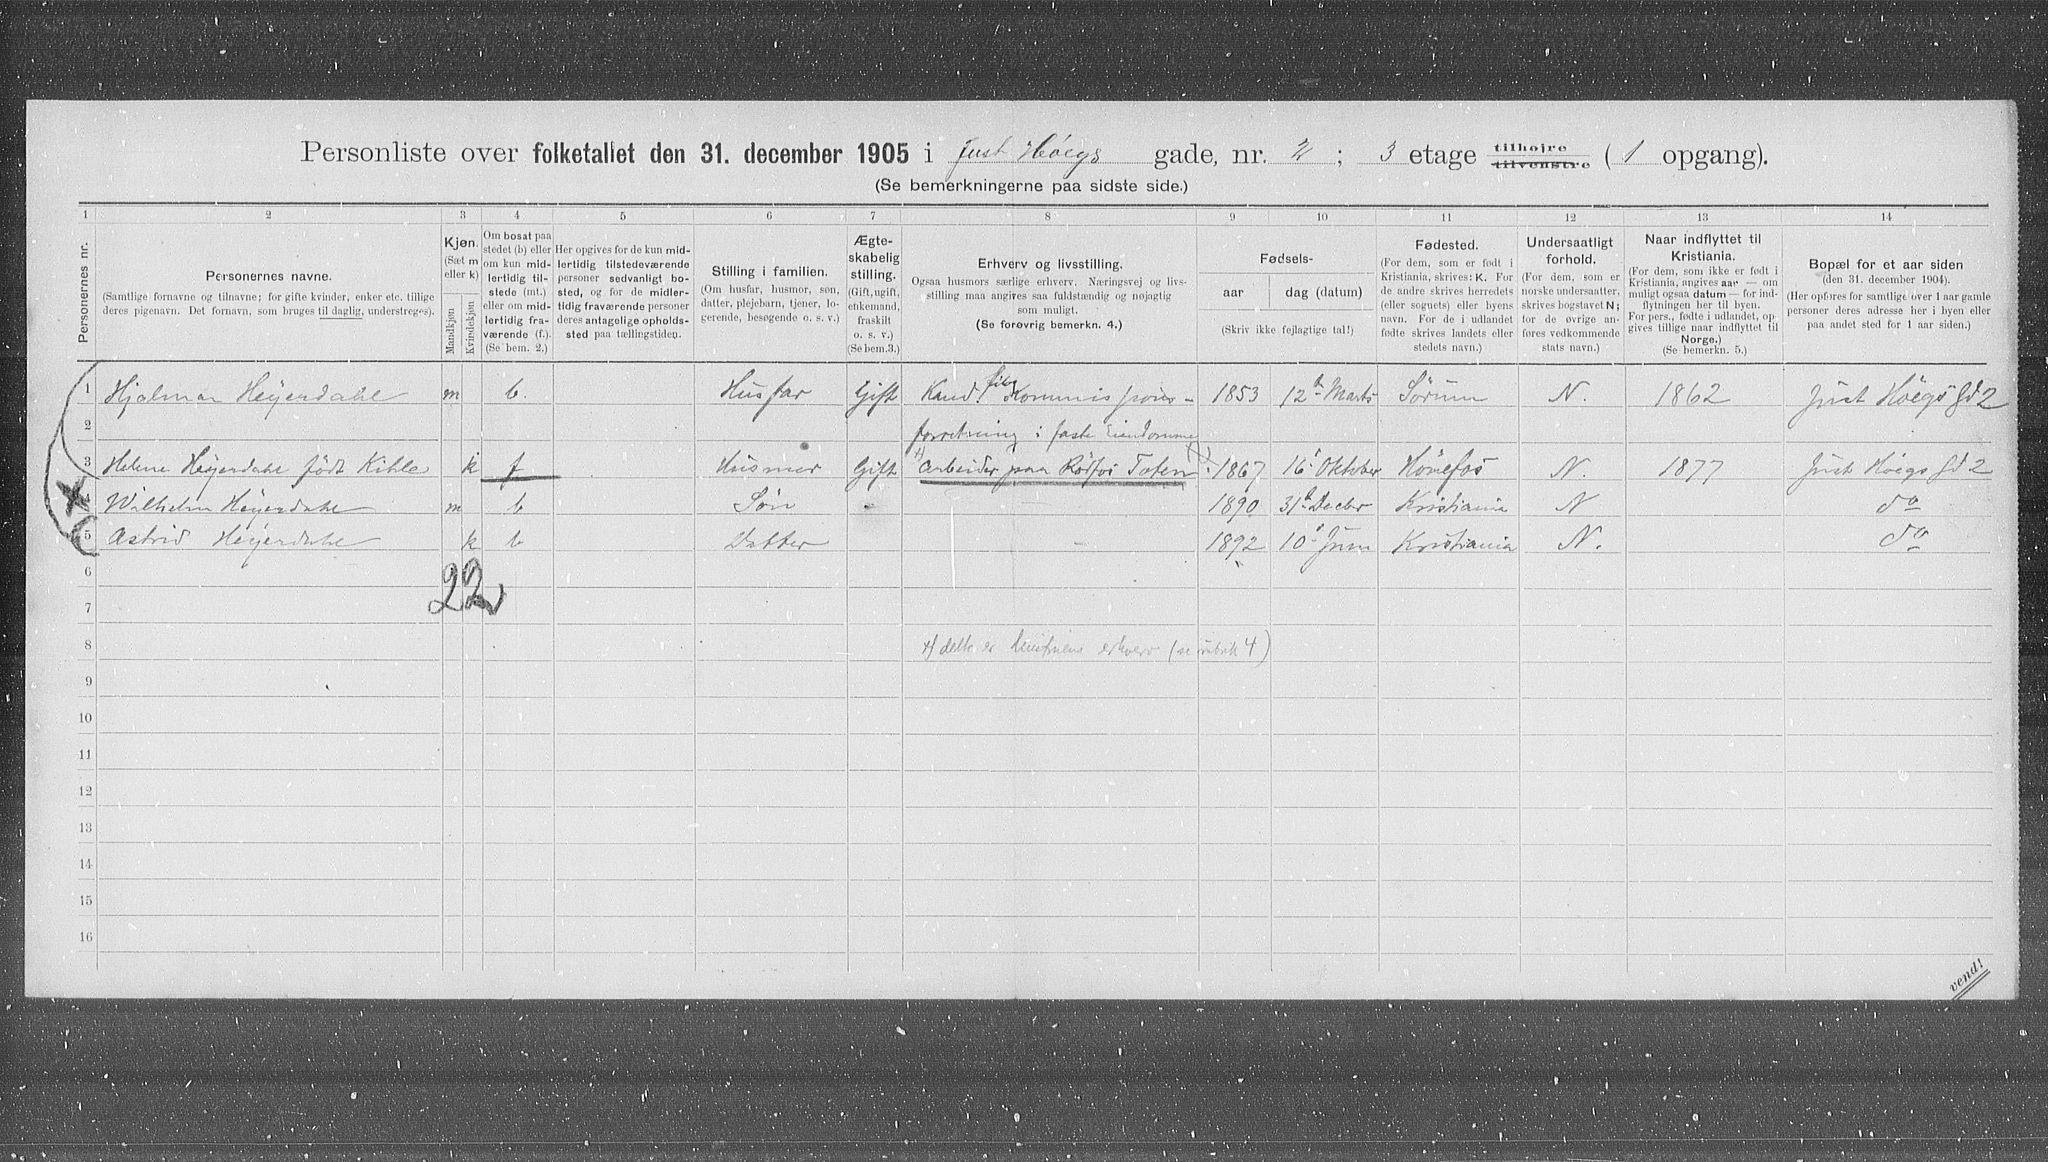 Personliste over folketallet den 31. december 1905 i Just Höegs gade, nr. 2 ; 3 etage tilhøjre tilvenstre ( 1 opgang).
(Se bemerkningerne paa sidste side.)
1 2 3 4 5 6 7 8 9 10 11 12 13 14
Personernes nr.
Personernes navne.
(Samtlige fornavne og tilnavne; for gifte kvinder, enker etc. tillige
deres pigenavn. Det fornavn, som bruges til daglig, understreges).
Kjøn.
(Sæt m
eller k)
Mandkjøn
Kvindekjøn
Om bosat paa
stedet (b) eller
om kun mid-
lertidig til-
stede (mt.)
eller om mid-
lertidig fra-
værende (f.).
(Se bem. 2.)
Her opgives for de kun mid-
lertidig tilstedeværende
personer sedvanligt bo-
sted, og for de midler-
tidig fraværende personer
deres antagelige opholds-
sted paa tællingstiden.
Stilling i familien.
(Om husfar, husmor, søn,
datter, plejebarn, tjener, lo-
gerende, besøgende o. s. v.)
Ægte-
skabelig
stilling.
(Gift, ugift,
enkemand,
fraskilt
o. s. v.)
(Se bem.3.)
Erhverv og livsstilling.
Ogsaa husmors særlige erhverv. Næringsvej og livs-
stilling maa angives saa fuldstændig og nøjagtig
som muligt.
(Se forøvrig bemerkn. 4.)
Fødsels-
aar
dag (datum)
(Skriv ikke fejlagtige tal!)
Fødested.
(For dem, som er født i
Kristiania, skrives: K. For
de andre skrives herredets
(eller sognets) eller byens
navn. For de i udlandet
fødte skrives landets eller
stedets navn.)
Undersaatligt
forhold.
(For dem, som er
norske undersaatter,
skrives bogstavet N;
for de øvrige an-
føres vedkommende
stats navn.)
Naar indflyttet til
Kristiania.
(For dem, som ikke er født i
Kristiania, angives aar — om
muligt ogsaa datum — for ind-
flytningen her til byen.
For pers., fødte i udlandet, op-
gives tillige naar indflyttet til
Norge.)
(Se bemerkn. 5.)
Bopæl for et aar siden
(den 31. december 1904).
(Her opføres for samtlige over 1 aar gamle
personer deres adresse her i byen eller
paa andet sted for 1 aar siden.)
1 Hjalmar Heyerdahl m b. Husfar Gift Kand. filos Kommissions- 1853 12te Marts Sørum N. 1862 Just Höegs Gd 2
2 forretning i faste Eiendomme
3 Helene Heyerdahl født Kihle k f Husmor Gift +) Arbeider paa Rødfos Toten 1867 16' Oktober Hönefos N. 1877 Just Höegs Gd 2
4 Wilhelm Heyerdahl m b Søn - 1890 31te Decbr Kristiania N do
5 Astrid Heyerdahl k b Datter - 1892 10' Juni Kristiania N. do
6
22
7
8 +) dette er husfruens erhverv (se rubrik 4)
9
10
11
12
13
14
15
16
vend!